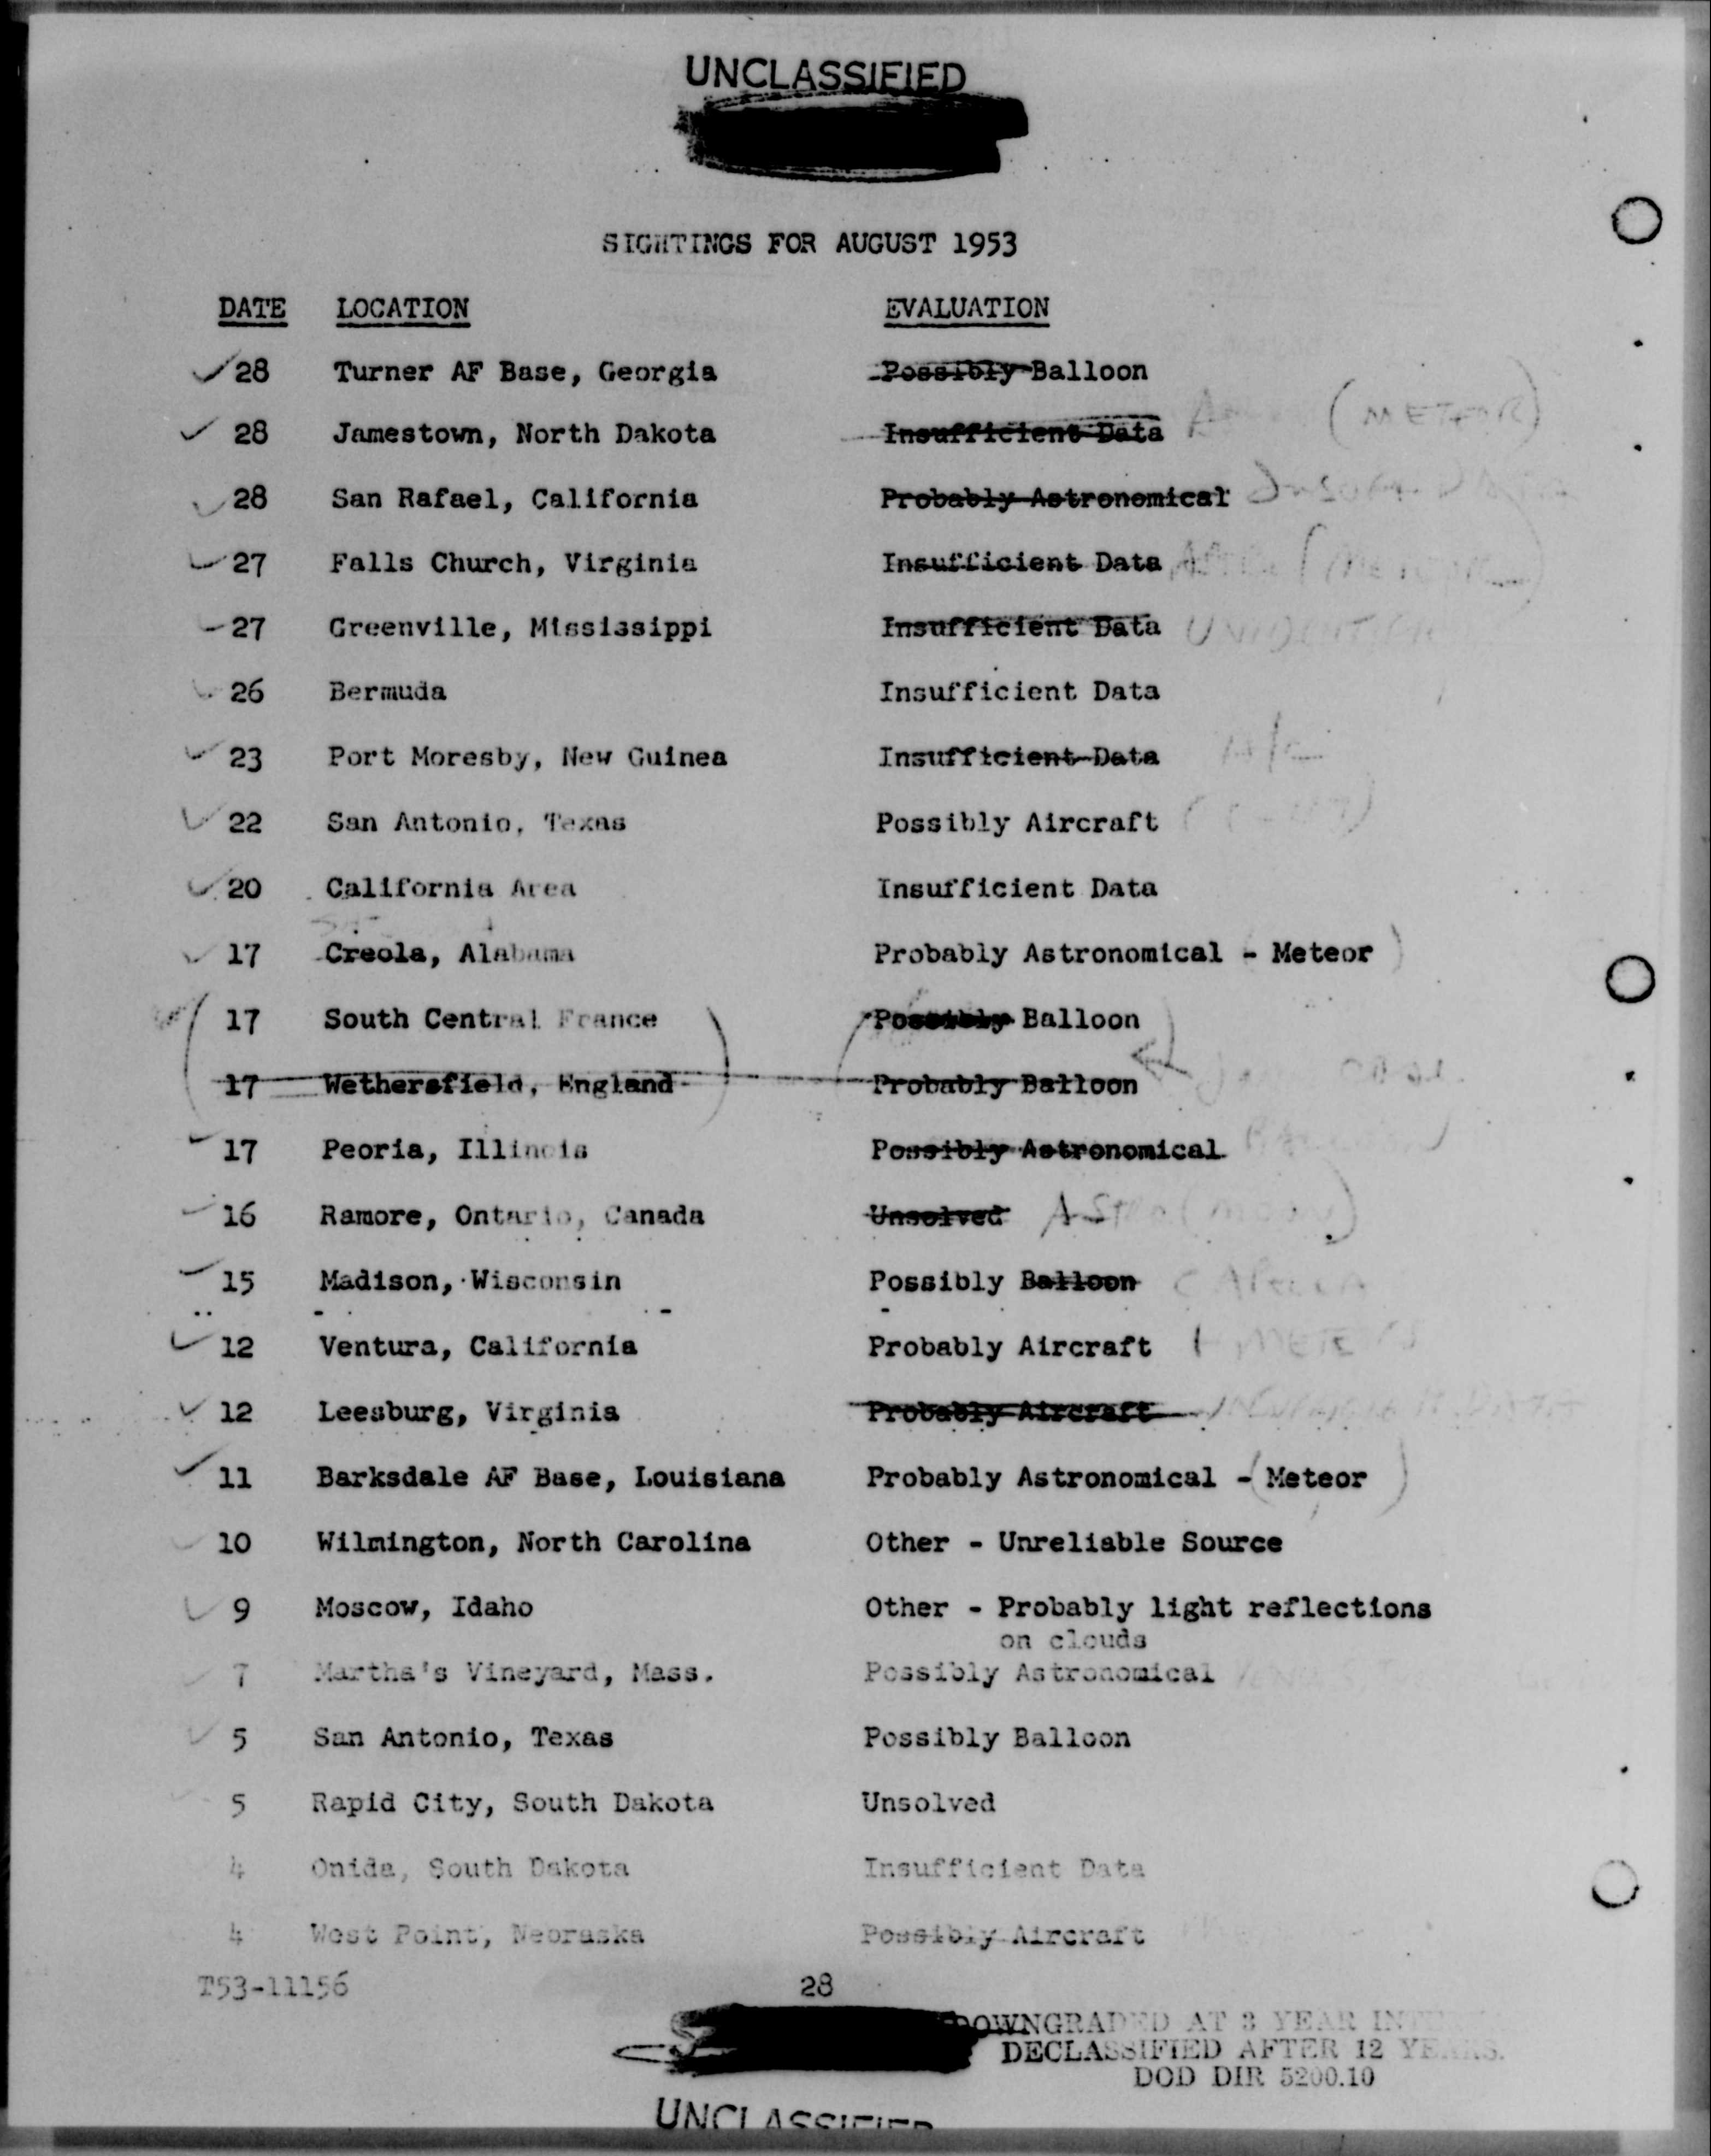 UNCLASSIFIED
SIGHTINGS FOR AUGUST 1953
DATE LOCATION EVALUATION
28 Turner AF Base, Georgia Possibly Balloon
28 Jamestown, North Dakota Insufficient Data (METEOR)
28 San Rafael, California Probably Astronomical
27 Falls Church, Virginia Insufficient Data
27 Greenville, Mississippi Insufficient Data
26 Bermuda Insufficient Data
23 Port Moresby, New Guinea Insufficient Data
22 San Antonio, Texas Possibly Aircraft
20 California Area Insufficient Data
17 Creola, Alabama Probably Astronomical - Meteor)
17 South Central France Possibly Balloon
17 Wethersfield, England Probably Balloon
17 Peoria, Illinois Possibly Astronomical
16 Ramore, Ontario, Canada Unsolved ASTRO (MOON)
15 Madison, Wisconsin Possibly Balloon
12 Ventura, California Probably Aircraft
12 Leesburg, Virginia Probably Aircraft
11 Barksdale AF Base, Louisiana Probably Astronomical - (Meteor)
10 Wilmington, North Carolina Other - Unreliable Source
9 Moscow, Idaho Other - Probably light reflections
on clouds
7 Martha's Vineyard, Mass. Possibly Astronomical
5 San Antonio, Texas Possibly Balloon
5 Rapid City, South Dakota Unsolved
4 Onida, South Dakota Insufficient Data
4 West Point, Nebraska Possibly Aircraft
T53-11156 28
DOWNGRADED AT 3 YEAR
DECLASSIFIED AFTER 12 YEARS.
DOD DIR 5200.10
UNCLASSIFIED